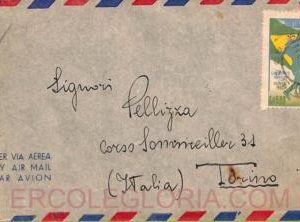 Signori
Pellizza
corso Sommeiller 31
(Italia) Torino
ER VIA AEREA
Y AIR MAIL
AR AVION
ERCOLEGLORIA.COM